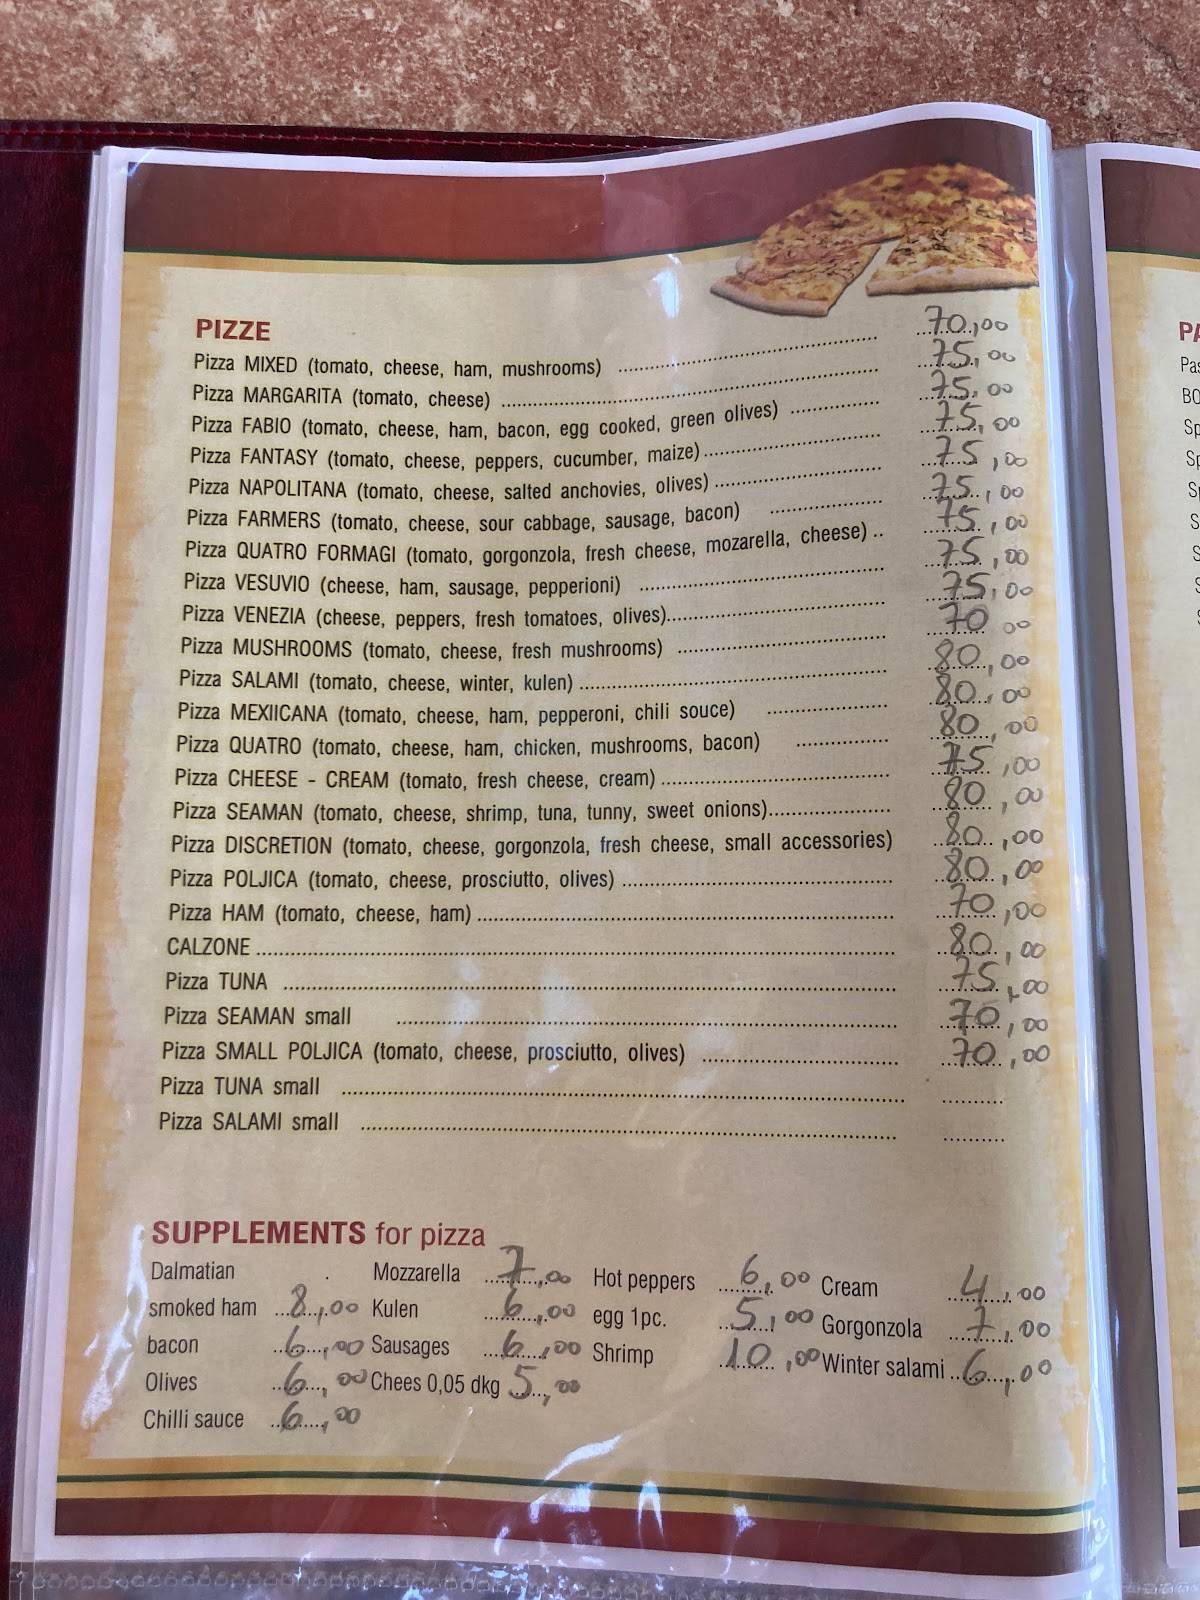 PIZZE
Pizza MIXED (tomato, cheese, ham, mushrooms) 70,00
Pizza MARGARITA (tomato, cheese) 75,00
Pizza FABIO (tomato, cheese, ham, bacon, egg cooked, green olives) 75,00
Pizza FANTASY (tomato, cheese, peppers, cucumber, maize) 75,00
Pizza NAPOLITANA (tomato, cheese, salted anchovies, olives) 75,00
Pizza FARMERS (tomato, cheese, sour cabbage, sausage, bacon) 75,00
Pizza QUATRO FORMAGI (tomato, gorgonzola, fresh cheese, mozarella, cheese) 75,00
Pizza VESUVIO (cheese, ham, sausage, pepperioni) 75,00
Pizza VENEZIA (cheese, peppers, fresh tomatoes, olives) 75,00
Pizza MUSHROOMS (tomato, cheese, fresh mushrooms) 70 00
Pizza SALAMI (tomato, cheese, winter, kulen) 80,00
Pizza MEXIICANA (tomato, cheese, ham, pepperoni, chili souce) 80,00
Pizza QUATRO (tomato, cheese, ham, chicken, mushrooms, bacon) 80,00
Pizza CHEESE - CREAM (tomato, fresh cheese, cream) 75,00
Pizza SEAMAN (tomato, cheese, shrimp, tuna, tunny, sweet onions) 80,00
Pizza DISCRETION (tomato, cheese, gorgonzola, fresh cheese, small accessories) 80,00
Pizza POLJICA (tomato, cheese, prosciutto, olives) 80,00
Pizza HAM (tomato, cheese, ham) 70,00
CALZONE 80,00
Pizza TUNA 75,00
Pizza SEAMAN small 70,00
Pizza SMALL POLJICA (tomato, cheese, prosciutto, olives) 70,00
Pizza TUNA small
Pizza SALAMI small
SUPPLEMENTS for pizza
Dalmatian Mozzarella 7,00 Hot peppers 6,00 Cream 4,00
smoked ham 8,00 Kulen 6,00 egg 1pc. 5,00 Gorgonzola 7,00
bacon 6,00 Sausages 6,00 Shrimp 10,00 Winter salami 6,00
Olives 6,00 Chees 0,05 dkg 5,00
Chilli sauce 6,00